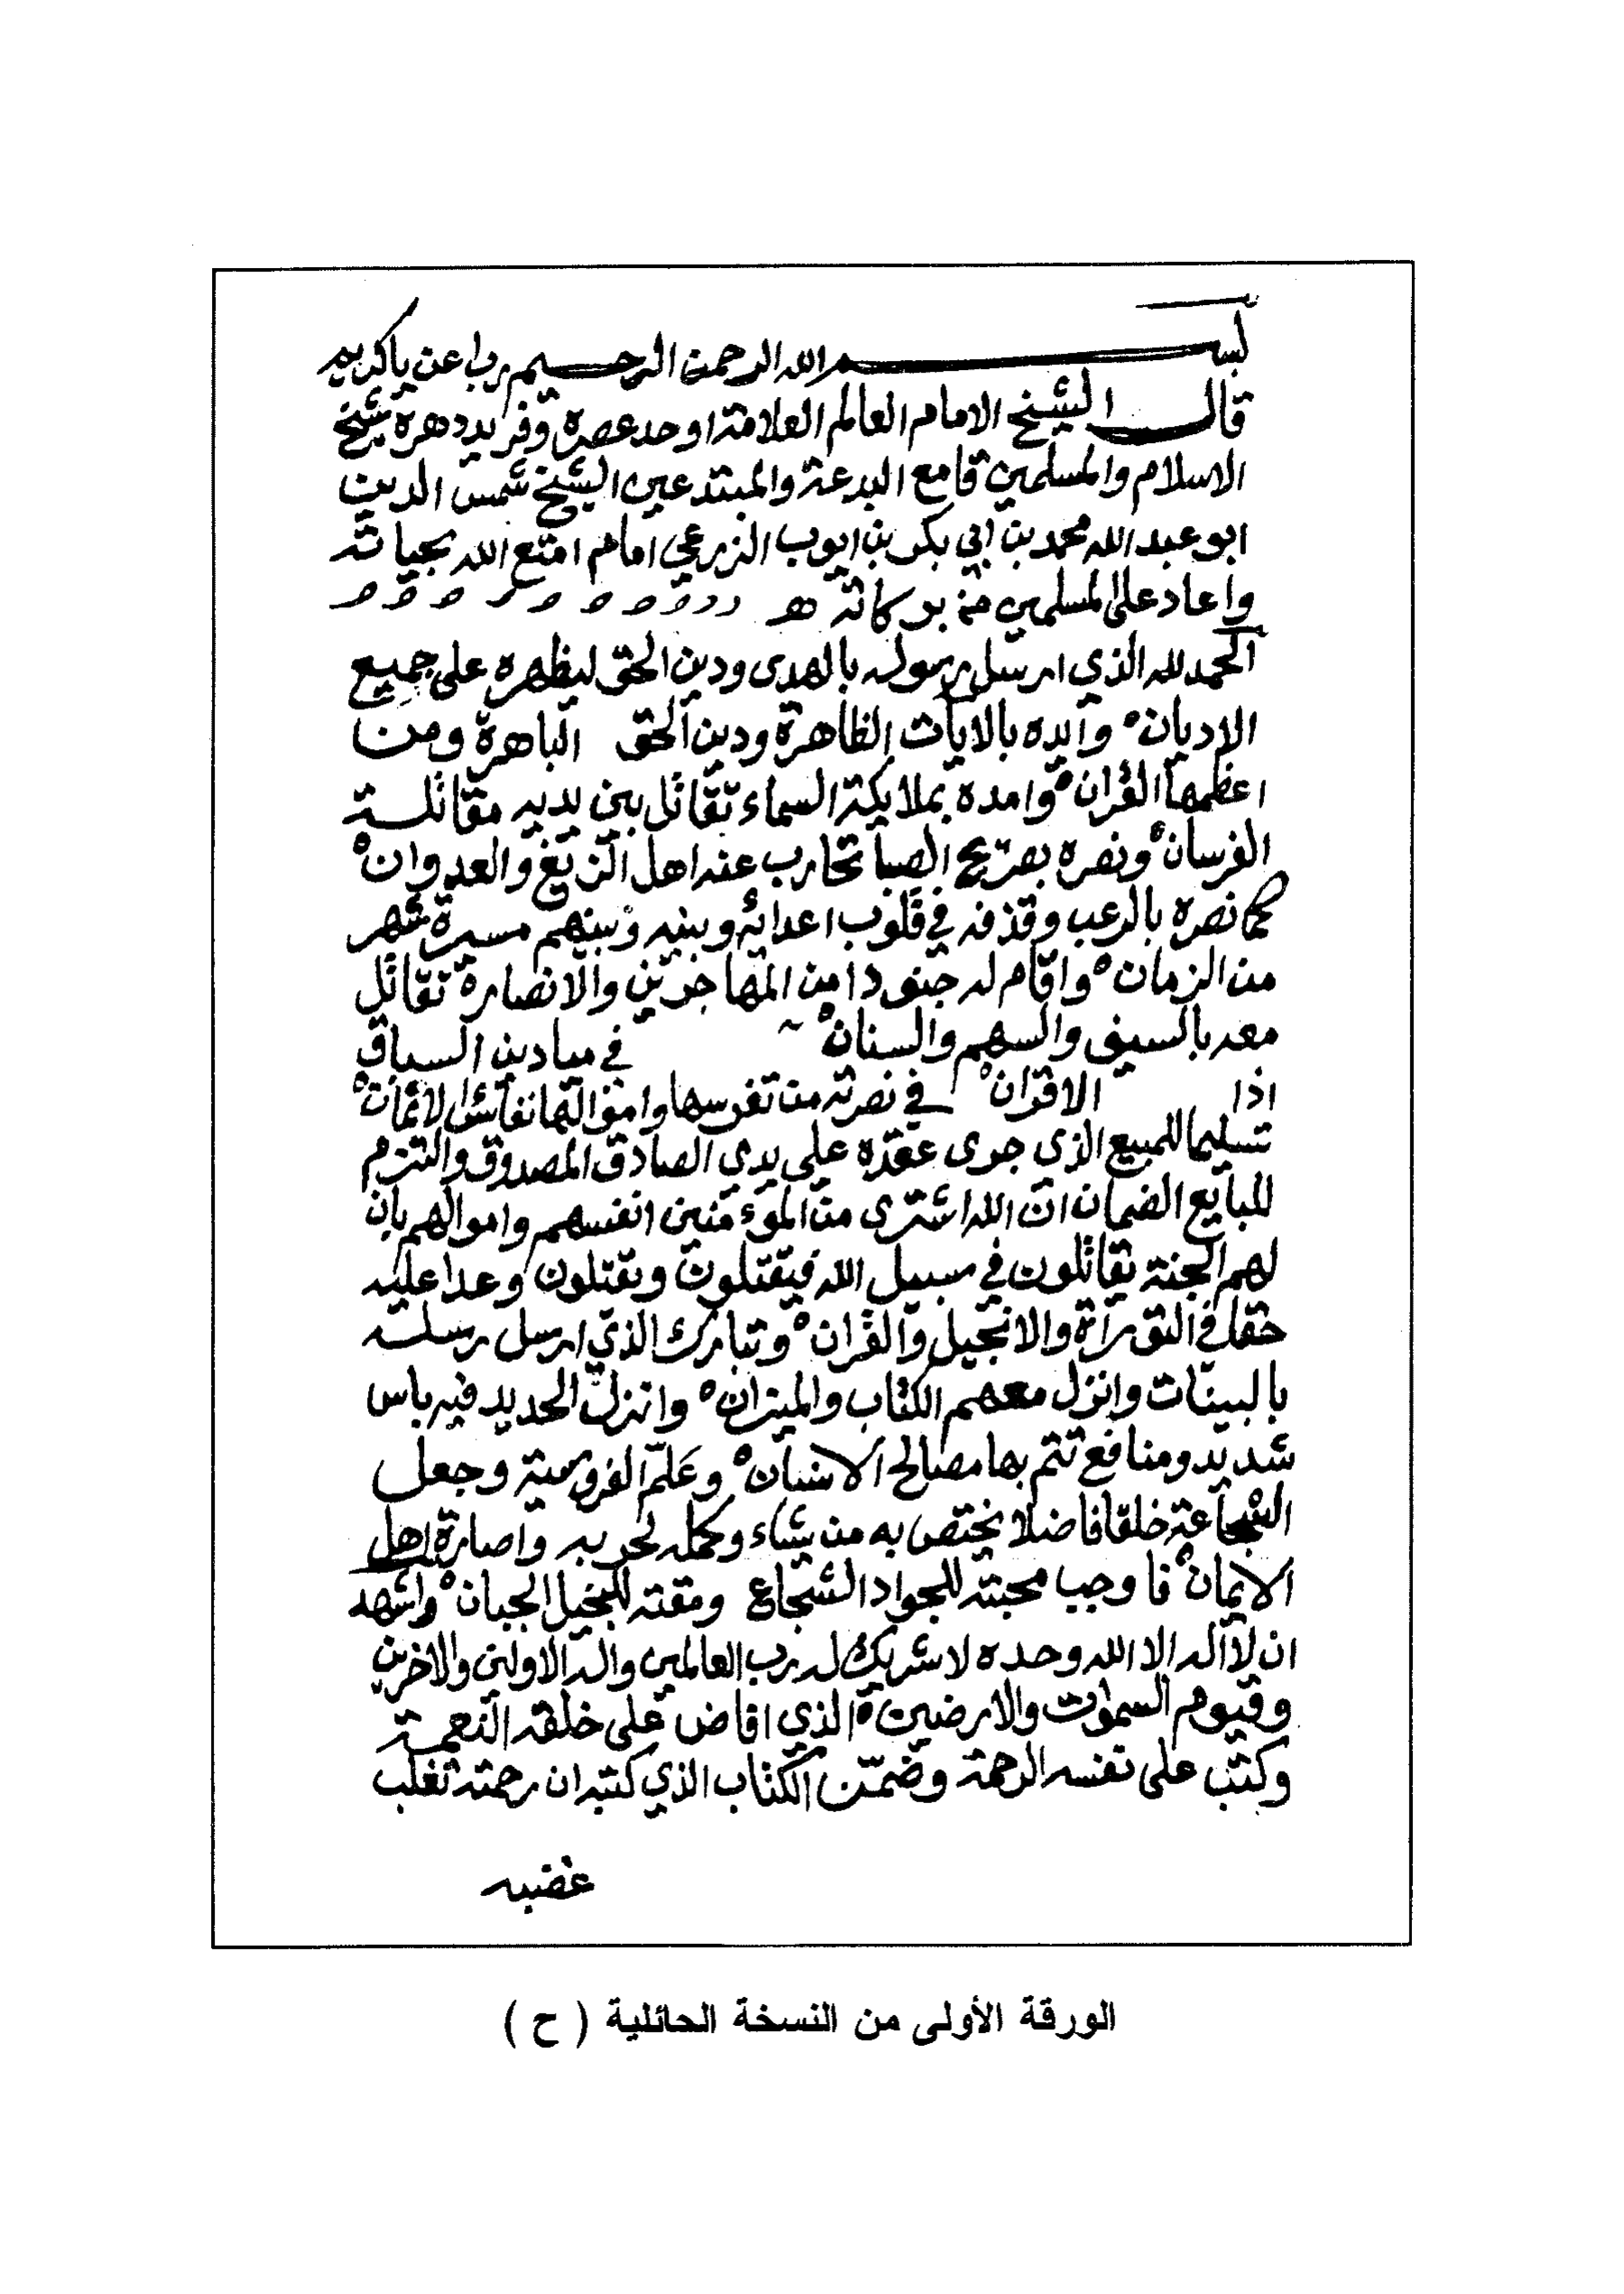 بسم الله الرحمن الرحيم رب اعن ياكريم
قال الشيخ الامام العالم العلامة اوحد عصره وفريد دهره شيخ
الاسلام والمسلمين قامع البدعة والمبتدعين الشيخ شمس الدين
ابو عبد الله محمد بن ابي بكر بن ايوب الزرعي امام امتع الله بحياته
واعاد على المسلمين من بركاته
الحمد لله الذي ارسل رسوله بالهدى ودين الحق ليظهره على جميع
الاديان وايده بالايات الظاهرة ودين الحق الباهرة ومن
اعظمها القران وامده بملايكة السماء تقاتل بين يديه مقاتلة
الفرسان ونصره بريح الصبا تحارب عنه اهل الزيغ والعدوان
كما نصره بالرعب وقذفه في قلوب اعدائه وبينه وبينهم مسيرة شهر
من الزمان واقام له جنودا من المهاجرين والانصار تقاتل
معه بالسيف والسهم والسنان في ميادين السباق
اذا الاقران في نصرته من نفوسها واموالها نفائس الاثمان
تسليما للمبيع الذي جرى عقده على يدي الصادق المصدوق والتزم
للبايع الضمان ان الله اشترى من المؤمنين انفسهم واموالهم بان
لهم الجنة يقاتلون في سبيل الله فيقتلون ويقتلون وعدا عليه
حقا في التوراة والانجيل والقران وتبارك الذي ارسل رسله
بالبينات وانزل معهم الكتاب والميزان وانزل الحديد فيه باس
شديد ومنافع تتم بها مصالح الانسان وعلّم الفروسية وجعل
الشجاعة خلقا فاضلا يختص به من يشاء وكمله لحزبه واصارة اهل
الايمان فاوجب محبته للجواد الشجاع ومقته للبخيل الجبان واشهد
ان لا اله الا الله وحده لا شريك له رب العالمين واله الاولين والاخرين
وقيوم السموات والارضين الذي افاض على خلقه النعمة
وكتب على نفسه الرحمة وضمّن الكتاب الذي كتبه ان رحمته تغلب
غضبه
الورقة الأولى من النسخة الحائلية ( ح )